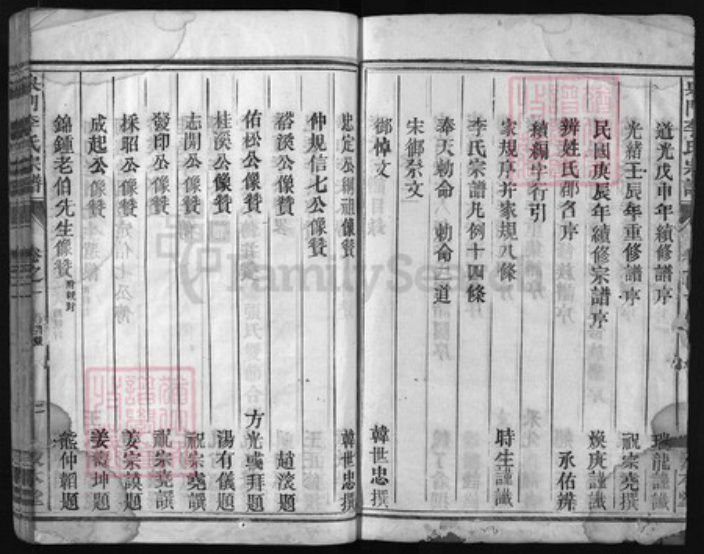 道光戊申年續修譜序 瑞龍謹識
光緒壬辰年重修譜序 祝宗堯撰
民國庚辰年續修宗譜序 煥庚謹識
辨姓氏郡名序 永佑辨
續編字行引
家規序并家規八條 時生謹識
李氏宗譜凡例十四條
奉天勅命 勅命三道
宋御祭文
御悼文 韓世忠撰
忠定公綱祖像贊 韓世忠撰
仲規信七公像贊
裕溪公像贊 趙淡題
佑松公像贊 方光彧拜題
桂溪公像贊 湯有儀題
志開公像贊 祝宗堯譔
發印公像贊 祝宗堯譔
採昭公像贊 姜宗謨題
成起公像贊 坤題
錦鍾老伯先生像贊 附輓對 仲韜題
李氏宗譜 卷之一
FamilySearch